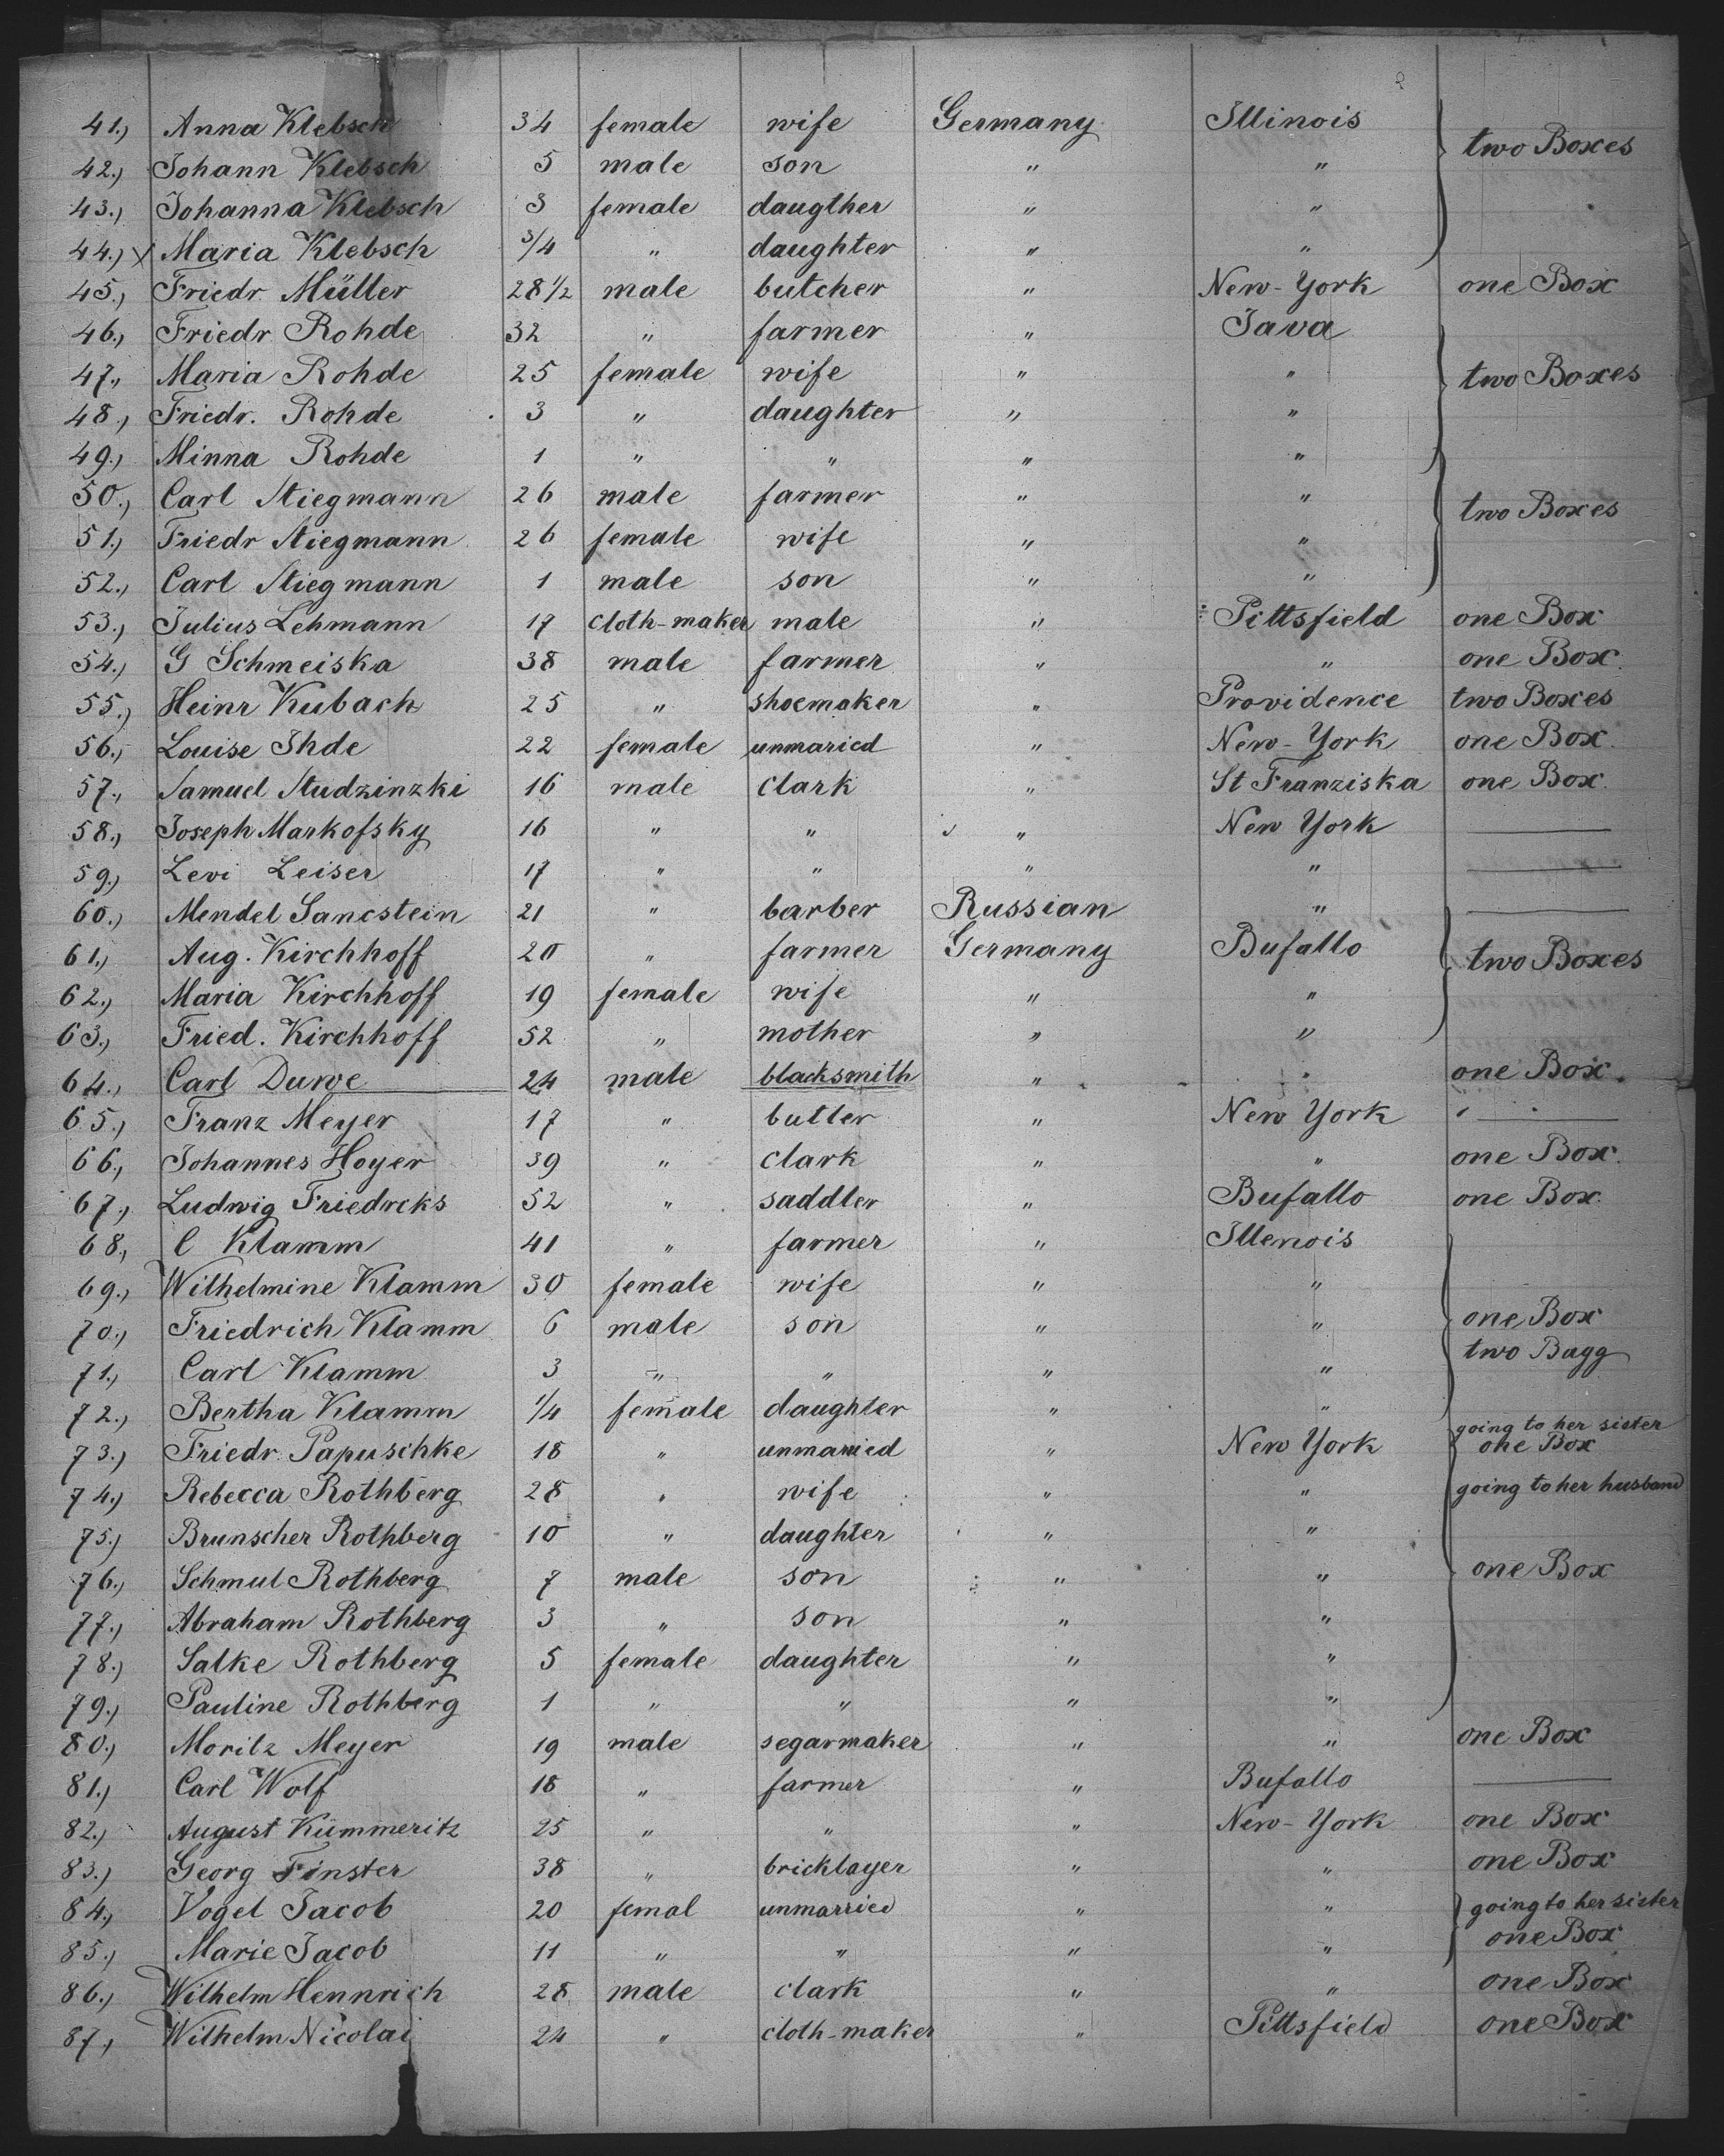 41.) Anna Klebsch 34 female wife Germany Illinois two Boxes
42.) Johann Klebsch 5 male son " "
43.) Johanna Klebsch 3 female daugther " "
44.) x Maria Klebsch 3/4 " daughter " "
45.) Friedr. Müller 28 1/2 male butcher " New-York one Box
46.) Friedr Rohde 32 " farmer " Java
47., Maria Rohde 25 female wife " " two Boxes
48.) Friedr. Rohde 3 " daughter " "
49.) Minna Rohde 1 " " " "
50.) Carl Stiegmann 26 male farmer " " two Boxes
51.) Friedr Stiegmann 26 female wife " "
52.) Carl Stiegmann 1 male son " "
53.) Julius Lehmann 17 cloth-maker male " Pittsfield one Box
54.) G Schmeiska 38 male farmer " " one Box.
55.) Heinr Kubach 25 " shoemaker " Providence two Boxes
56., Louise Ihde 22 female unmaried " New-York one Box.
57., Samuel Studzinzki 16 male clark " St Franziska one Box.
58., Joseph Markofsky 16 " " " New York —
59.) Levi Leiser 17 " " " " —
60.) Mendel Sancstein 21 " barber Russian " —
61.) Aug. Kirchhoff 20 " farmer Germany Bufallo two Boxes
62.) Maria Kirchhoff 19 female wife " "
63.) Fried. Kirchhoff 52 " mother " "
64., Carl Duwe 24 male blacksmith " " one Box.
65.) Franz Meyer 17 " butler " New York —
66., Johannes Hoyer 39 " clark " " one Box.
67.) Ludwig Friedrcks 52 " saddler " Bufallo one Box.
68., C Klamm 41 " farmer " Illenois
69.) Wilhelmine Klamm 30 female wife " "
70.) Friedrich Klamm 6 male son " " one Box
71.) Carl Klamm 3 " " " " two Bagg
72.) Bertha Klamm 1/4 female daughter " "
73.) Friedr. Papuschke 18 " unmaried " New York going to her sister one Box
74.) Rebecca Rothberg 28 " wife " " going to her husband
75.) Brunscher Rothberg 10 " daughter " "
76., Schmul Rothberg 7 male son " " one Box
77.) Abraham Rothberg 3 " son " "
78.) Salke Rothberg 5 female daughter " "
79.) Pauline Rothberg 1 " " " "
80.) Moritz Meyer 19 male segarmaker " " one Box
81.) Carl Wolf 18 " farmer " Bufallo —
82.) August Kümmeritz 25 " " " New-York one Box
83.) Georg Finster 38 " bricklayer " " one Box
84., Vogel Jacob 20 femal unmarried " " going to her sister
85.) Marie Jacob 11 " " " " one Box
86.) Wilhelm Hennrich 28 male clark " " one Box
87., Wilhelm Nicolai 24 " cloth-maker " Pittsfield one Box